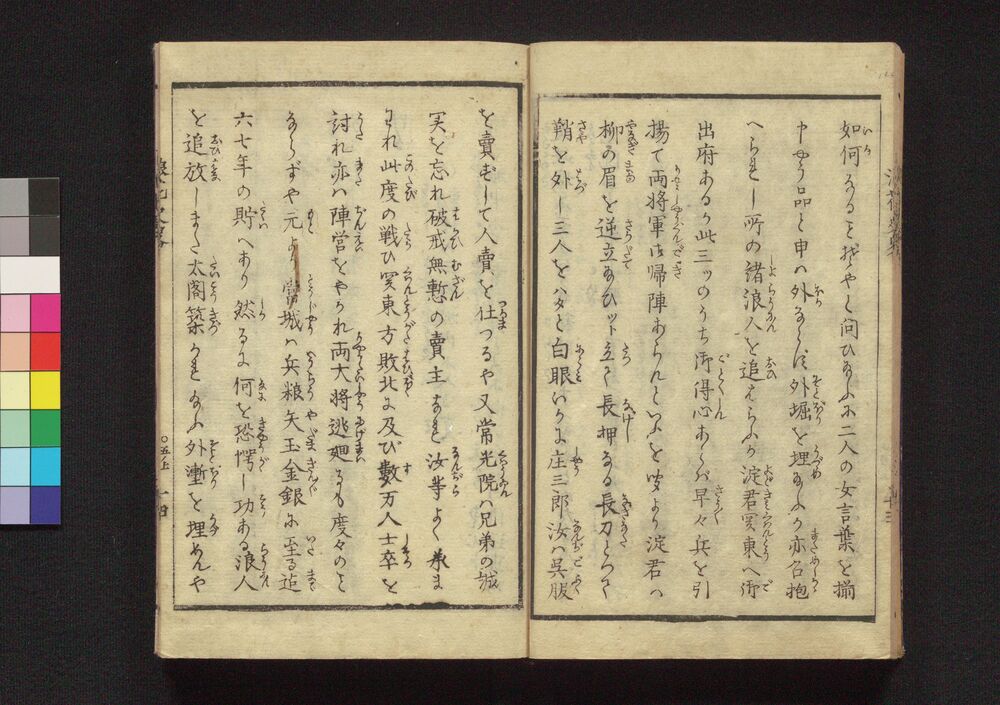 如何なることぞやと問ひ給ふに二人の女言葉を揃
中やう品と申は外ならず外堀を埋給ふか亦召抱
へられし所の諸浪人を追はらふか淀君関東へ御
出府あるか此三ツのうち御得心あらば早々兵を引
揚て両将軍は帰陣あらんといふを聞より淀君は
柳の眉を逆立給ひツト立て長押なる長刀とつて
鞘を外し三人をハタと白眼いかに庄三郎汝は呉服
を賣ずして人賣を仕つるや又常光院は兄弟の誠
実を忘れ破戒無慙の賣主なれ汝等よく承ま
われ此度の戦ひ関東方敗北に及び数万人士卒を
討れ亦は陣営をやかれ両大将逃廻るも度々のこと
ならずや元より當城は兵粮矢玉金銀に至る迄
六七年の貯へあり然るに何を恐愕し功ある浪人
を追放しまた太閤築かれ給ふ外塹を埋めんや